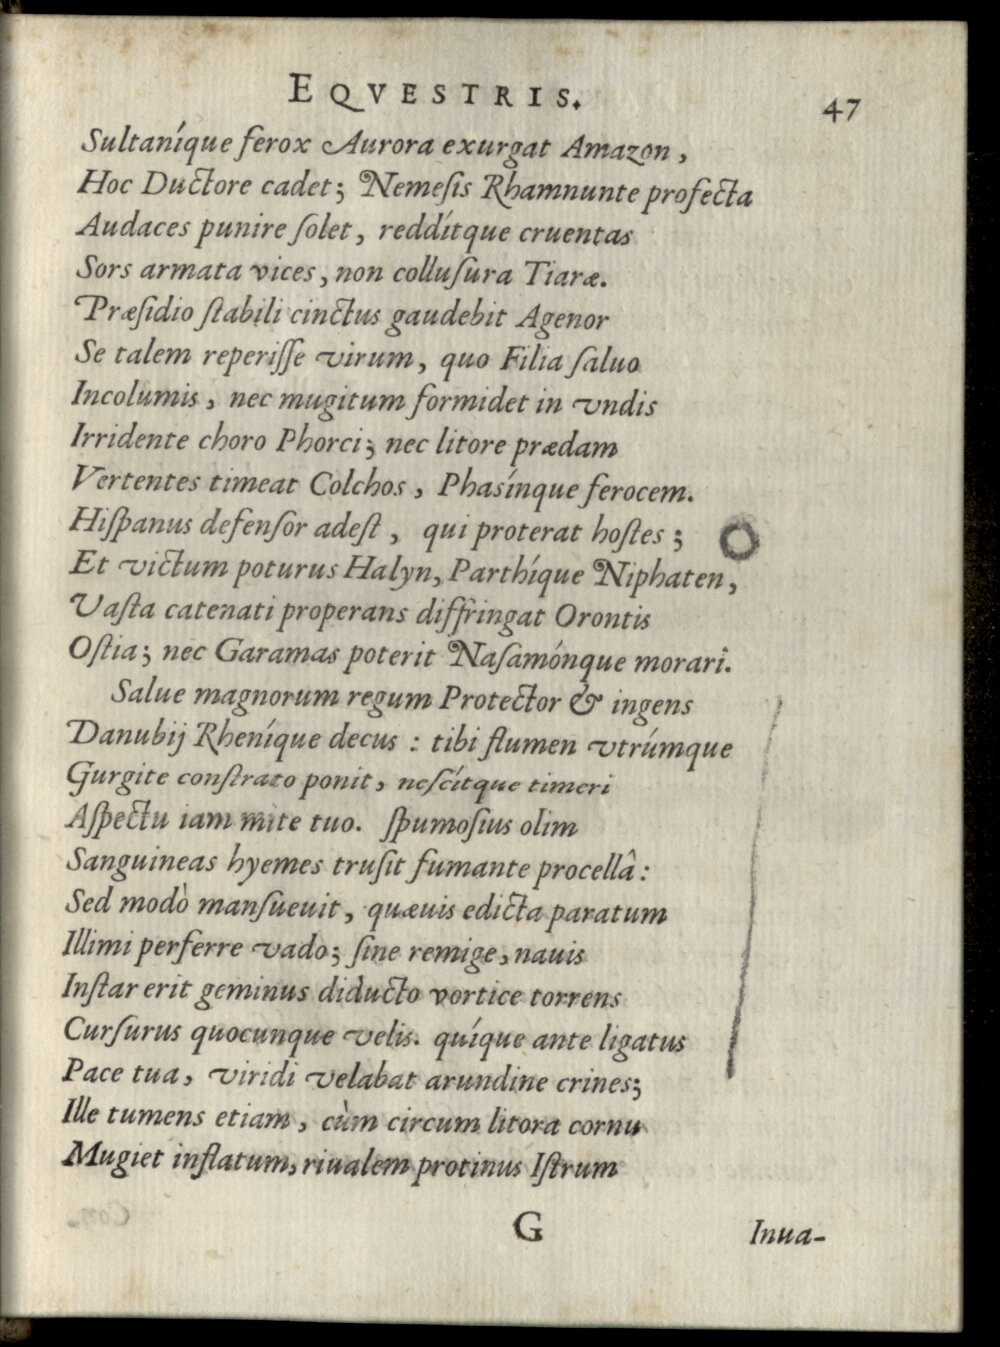 EQVESTRIS.
47
Sultaníque ferox Aurora exurgat Amazon,
Hoc Ductore cadet; Nemesis Rhamnunte profecta
Audaces punire ſolet, reddítque cruentas
Sors armata vices, non colluſura Tiaræ.
Præſidio ſtabili cinctus gaudebit Agenor
Se talem reperiſſe virum, quo Filia ſaluo
Incolumis, nec mugitum formidet in vndis
Irridente choro Phorci; nec litore prædam
Vertentes timeat Colchos, Phasínque ferocem.
Hiſpanus defenſor adeſt, qui proterat hoſtes;
Et victum poturus Halyn, Parthíque Niphaten,
Vaſta catenati properans diffringat Orontis
Oſtia; nec Garamas poterit Naſamónque morari.
Salue magnorum regum Protector & ingens
Danubij Rheníque decus: tibi flumen vtrúmque
Gurgite conſtrato ponit, neſcítque timeri
Aſpectu iam mite tuo. ſpumoſius olim
Sanguineas hyemes truſit fumante procellâ:
Sed modò manſueuit, quæuis edicta paratum
Illimi perferre vado; ſine remige, nauis
Inſtar erit geminus diducto vortice torrens
Curſurus quocunque velis. quíque ante ligatus
Pace tua, viridi velabat arundine crines;
Ille tumens etiam, cùm circum litora cornu
Mugiet inflatum, riualem protinus Iſtrum
G
Inua-